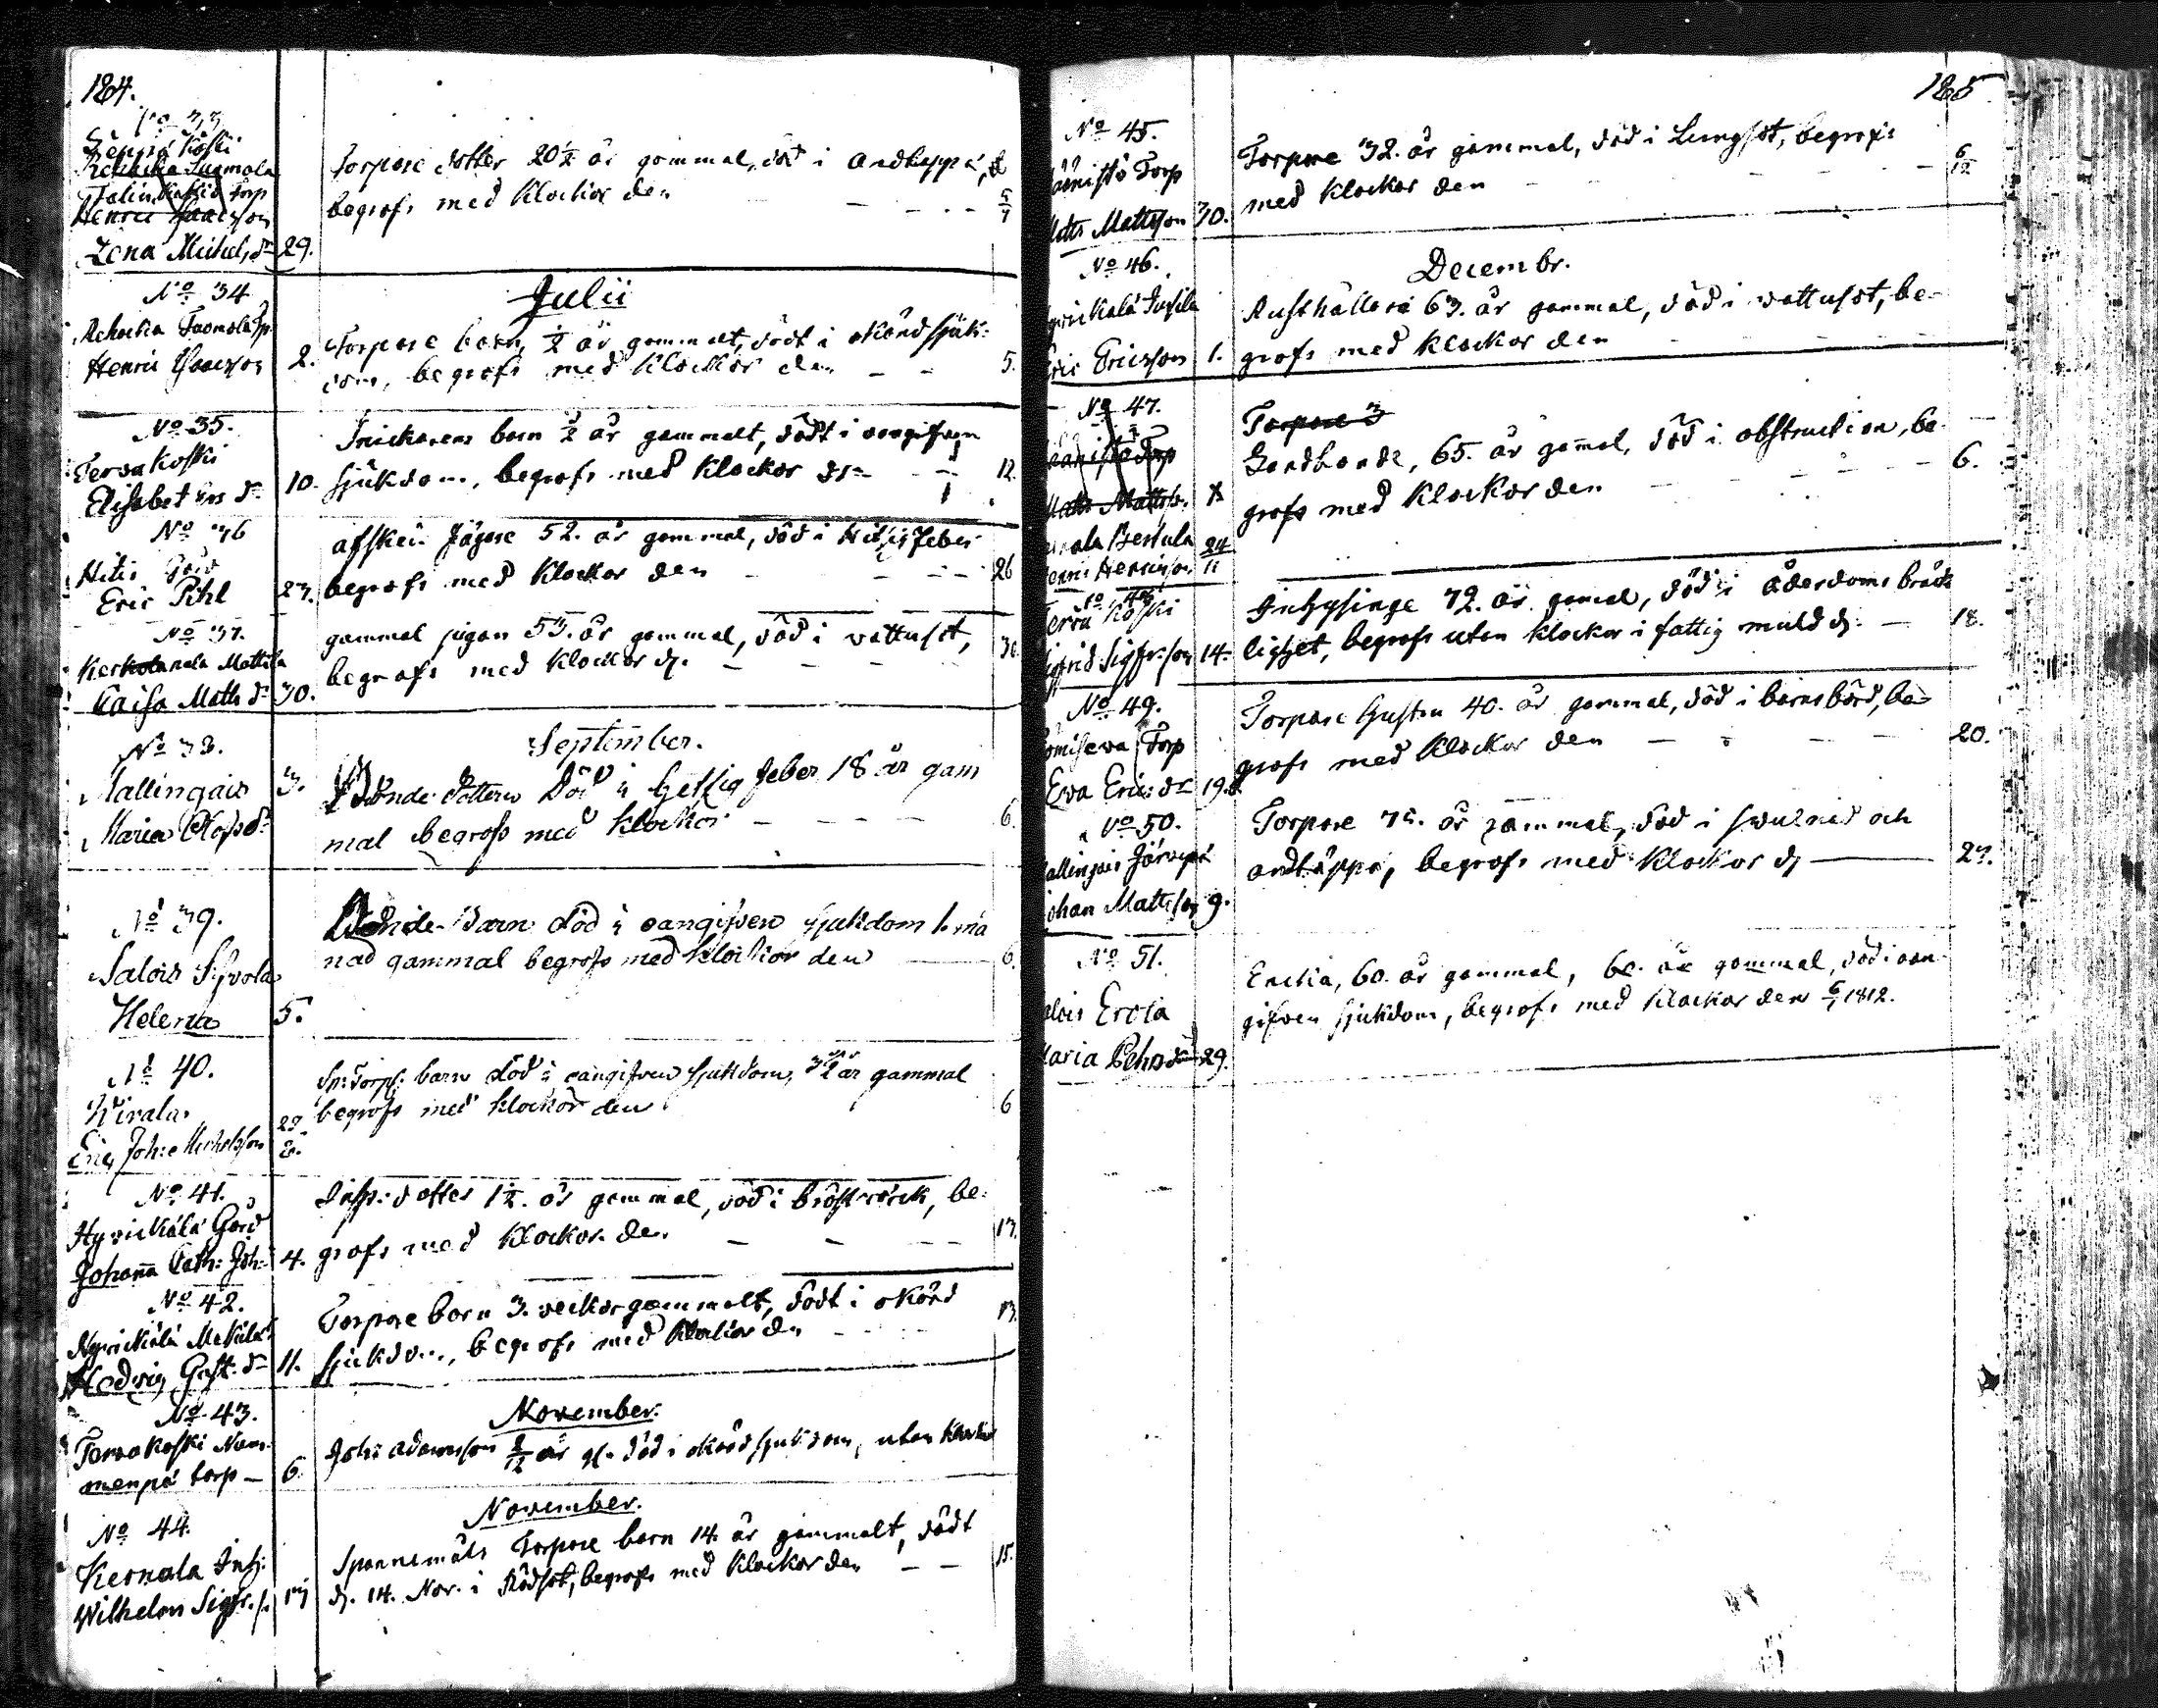 184.
No 33
Koski
Torpare dotter 20 1/2 år gammal, död i andtäppa,
begrofs med klockor den
Lena Michels dr 29.
No 34
Julii
Henric Isacsson 2.
Torpare barn, 1/2 år gammalt, dödt i okänd sjuk-
dom, begrofs med klockor den 5.
No 35.
Tervakoski
Elisabet dr 10.
Snickarens barn 1/2 år gammalt, dödt i oangifven
sjukdom, begrofs med klockor den 12.
No 36
Hitis Gård
Eric Pihl 23.
afsked: Jägare 52. år gammal, död i Hitsig feber
begrofs med klockor den 26
No 37.
Mattila
Caisa Matts dr 30.
gammal pigan 53. år gammal, död i vattusot,
begrofs med klockor d.
No 38.
September.
Mallingais 3.
Maria Olofsdr
Bonde dottern Död i hettig feber 18 år gam
mal begrofs med klockor 6.
No 39.
Salois Syvola
Helena 5.
Bonde Barn död i oangifven sjukdom 1. må
nad gammal begrofs med klockor den 6.
No 40.
Eric Joh: Michelsson 29
8.
Torp: barn död i oangifven sjukdom, år gammal
begrofs med klockor den 6
No 41.
Hyvickälä Gård
Johanna Cath: Joh: 4.
dotter 1 1/2. år gammal, död i bröstvärck, be-
grofs med klockor den 13.
No 42.
Hyvickälä
Hedvig Gust. dr 11.
Torpare barn 3. veckor gammalt, dödt i okänd
sjukdom, begrofs med klockor den 13.
No 43.
November.
Tervakoski Num-
menpä torp 6.
Joh: Adamsson år gl. död i okänd sjukdom, utan klockor
No 44.
November.
Kernala Inh:
Wilhelm Sigfr. s.
Spannemåls Torpare barn 14. år gammalt, dödt
d. 14. Nov. i Rödsot, begrofs med klockor den 15.
185
No 45.
Torp
Matts Mattsson 30.
Torpare 32. år gammal, död i Lungsot, begrofs
med klockor den 6/12
No 46.
Decembr.
Eric Ericsson 1.
Rusthållare 63. år gammal, död i vattusot, be-
grofs med klockor den
No 47.
Torpare 3
Torp
Matts Mattss.
Bertula
Henric Henricsson 24/11
Landbonde, 65. år gamal, död i obstruction, be-
grofs med klockor den 6.
No 48
Terva Koski
Sigfrid Sigfr:son 14.
Inhysinge 72. år gamal, död i ålderdoms bräck
lighet, begrofs utan klockor i fattig muld d. 18.
No 49.
Torp
Eva Erics dr 19.
Torpare Hustru 40. år gammal, död i barnsbörd, be-
grofs med klockor den 20.
No 50.
Mallingais Järvepä
Johan Mattsson 9.
Torpare år gammal, död i svulnad och
andtäppa, begrofs med klockor d 27.
No 51.
Salois Erola
Maria Pehrs dr 29.
Enckia, 60. år gammal, 60. år gammal, död i oan-
gifven sjukdom, begrofs med klockor den 6/1 1812.